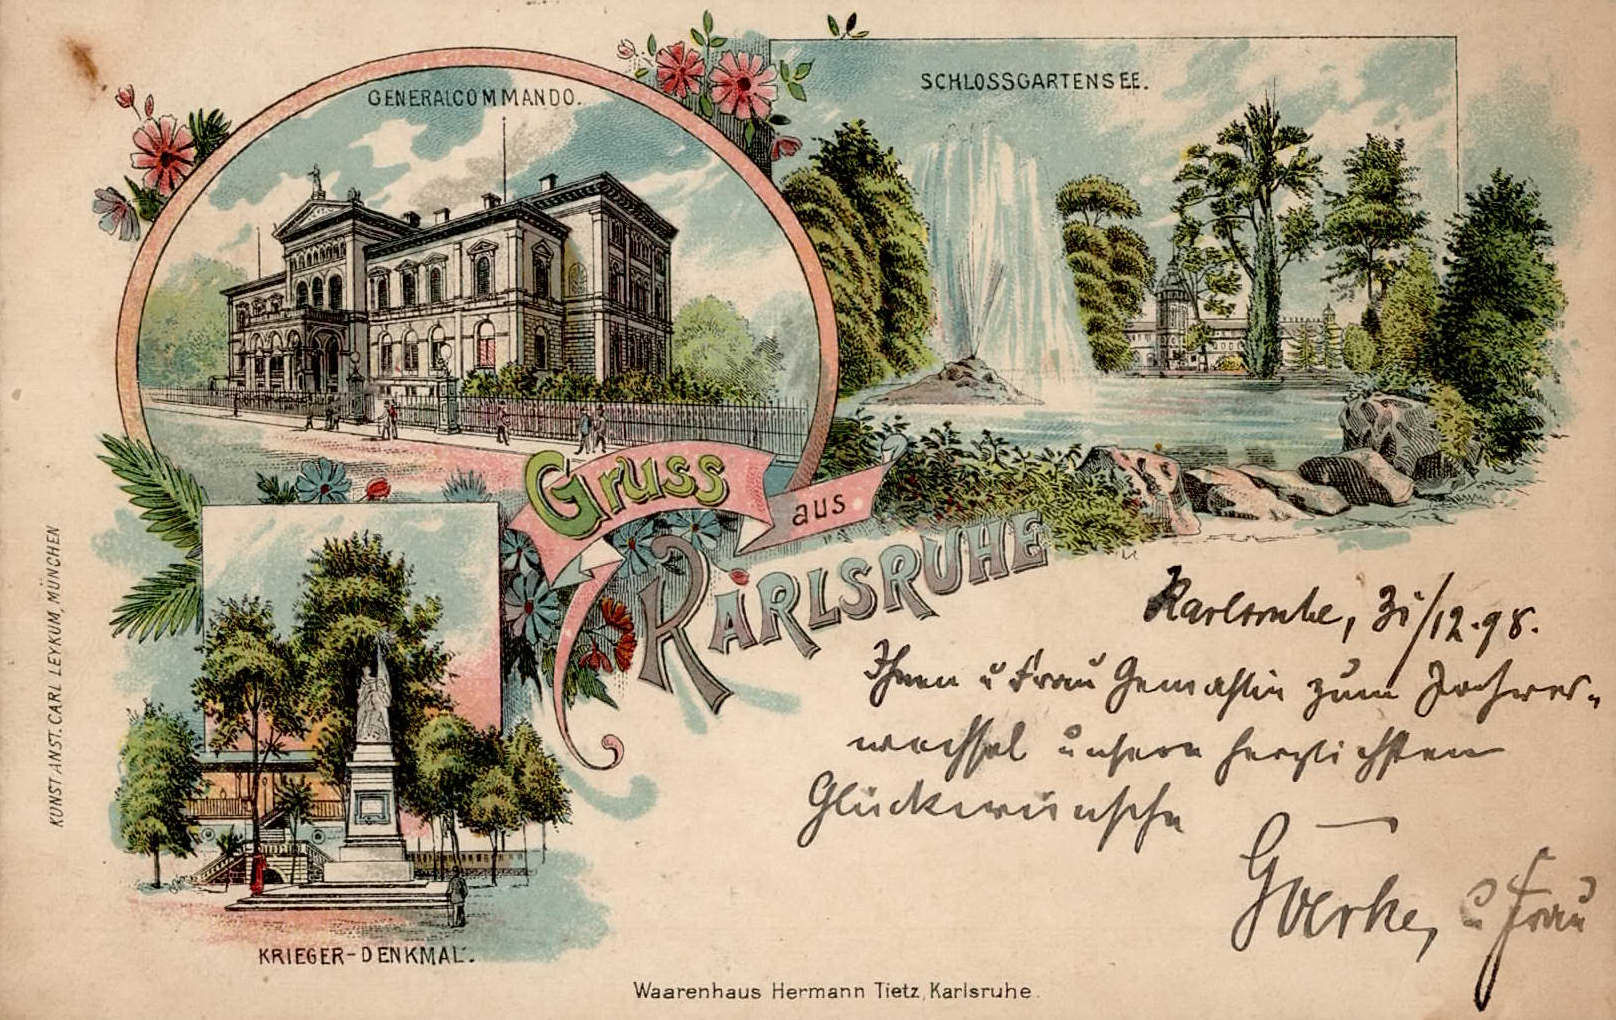 GENERALCOMMANDO.
SCHLOSSGARTENSEE.
Gruss
aus
KARLSRUHE
KUNSTANST. CARL LEYKUM, MÜNCHEN
Karlsruhe, 31/12.98.
Ihnen u Frau Gemahlin zum Jahres-
wechsel unsere herzlichsten
Glückwünsche
u Frau
KRIEGER-DENKMAL.
Waarenhaus Hermann Tietz, Karlsruhe.